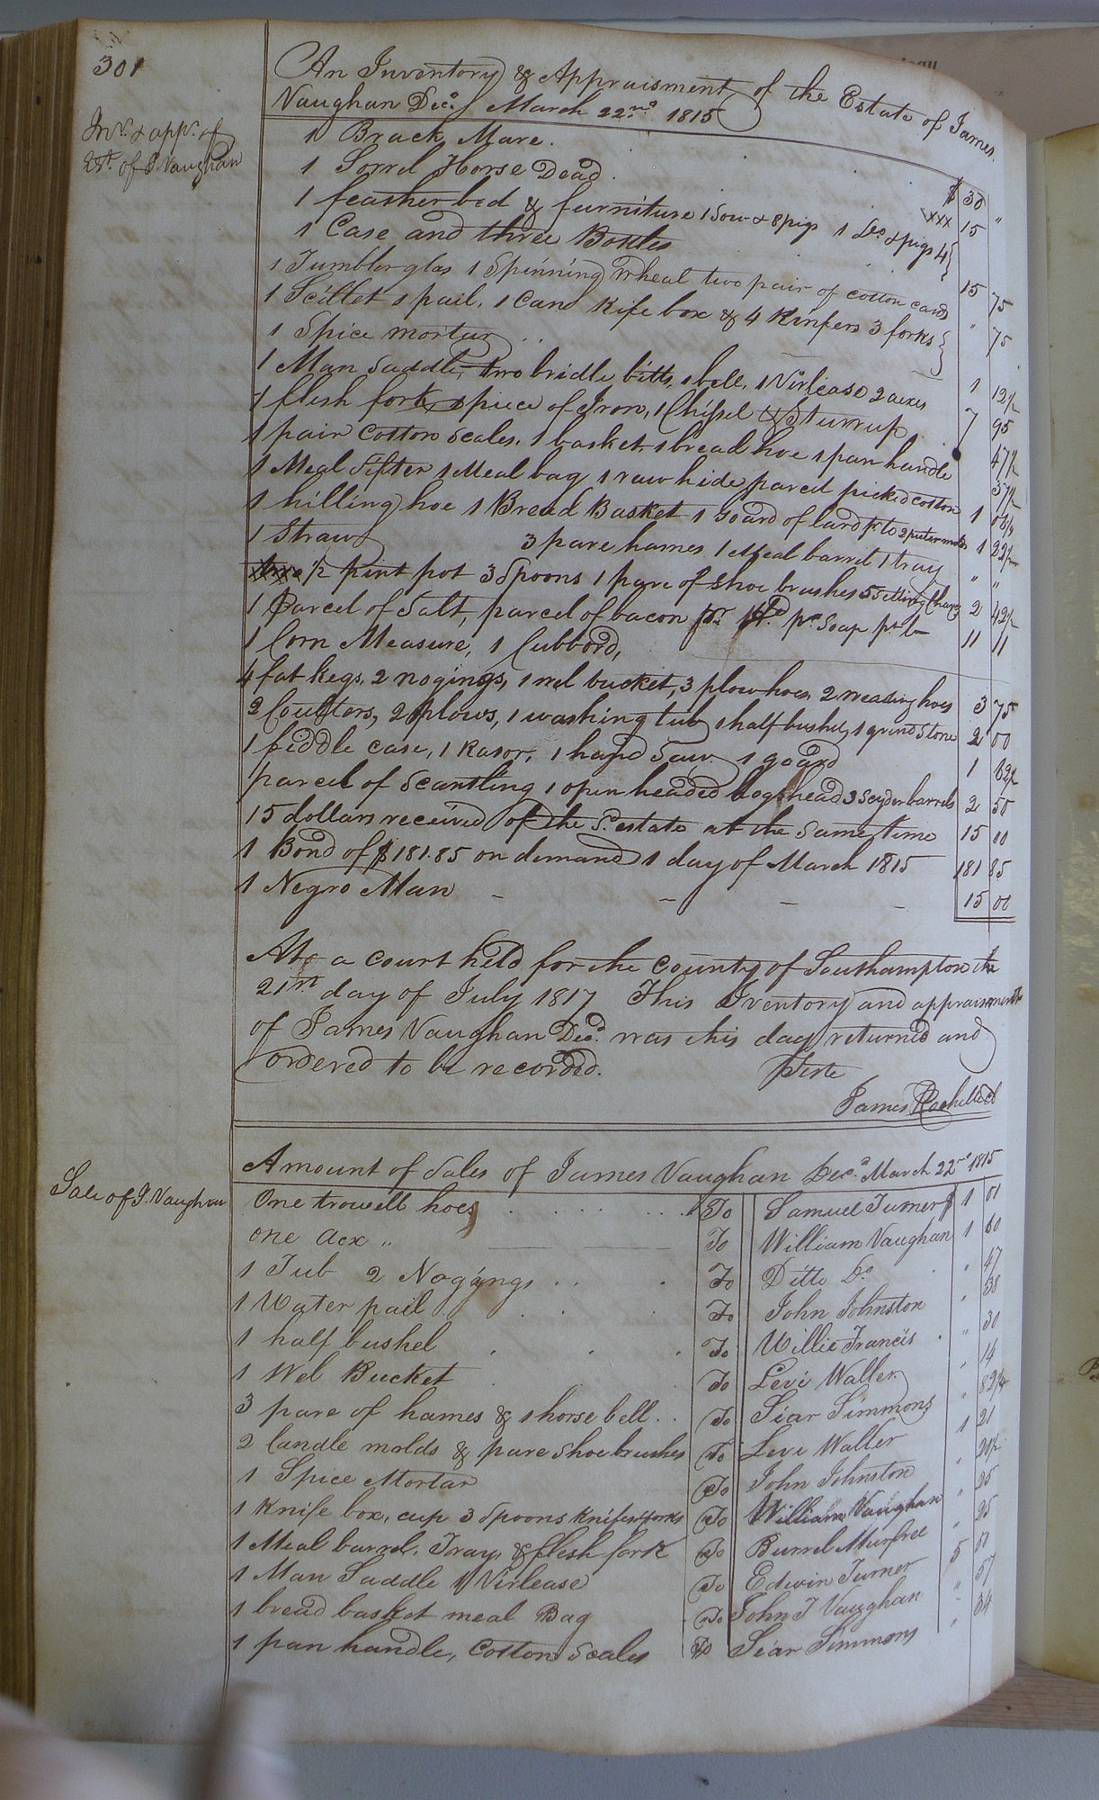 301
An Inventory & Appraisment of the Estate of James
Vaughan Decd March 22nd 1815
Invy & appt of
Est. of J. Vaughan
1 Brack Mare. $ 30 "
1 Sorrel Horse Dead xxx 15
1 feather bed & furniture 1 Sow & 8 pigs 1 Do & pigs 4
1 Case and three Bottles 15 75
1 Tumbler glas 1 Spinning Wheal two pair of cotton cards " 75
1 Scillet 1 pail, 1 Cann Kife box & 4 Knifers 3 forks
1 Spice mortur 1 12½
1 Man Saddle, two bridle bitts, 1 bell, 1 Virlease 2 axes 7 95
1 flesh fork, 1 piece of Iron, 1 Chissel & Sturrup 47½
1 pair Cotton Scales, 1 basket, 1 bread hoe 1 pan handle 37½
1 Meal Sifter 1 Meal bag 1 raw hide, parcel picked cotton 1
1 hilling hoe 1 Bread Basket 1 Goard of lard 1 22½
1 Straw 3 pare hames 1 Meal barrel 1 tray " "
½ pint pot 3 Spoons 1 pare of Shoe brushes 5 Setting Chars 2 42½
1 Parcel of Salt, parcel of bacon Soap 11 11
1 Corn Measure, 1 Cubbord,
4 fat kegs, 2 nogings, 1 wel bucket, 3 plow hoes 2 weading hoes 3 75
2 Coulters, 2 plows, 1 washing tub 1 half bushel, 1 grind Stone 2 00
1 fiddle case, 1 Rasor, 1 hand Saw 1 goard 1 62½
1 parcel of Scantling 1 open headed hogshead 3 Scyder barrels 2 50
15 dollars received of the Sd estate at the Same time 15 00
1 Bond of $181.85 on demand 1 day of March 1815 181 85
1 Negro Man 15 00
At a court held for the County of Southampton the
21st day of July 1817 This Iventory and appraisment
of James Vaughan Decd was this day returned and
ordered to be recorded. Teste
James Rochelle
Amount of Sales of James Vaughan Decd March 22nd 1815
Sale of J. Vaughan
One trowell hoes To Samuel Turner $ 1 01
One aex " To William Vaughan 1 60
1 Tub 2 Nogings To Ditto Do " 47
1 Water pail To John Johnston " 38
1 half bushel To Willie Francis " 30
1 Wel Bucket To Levi Waller " 14
3 pare of hames & 1 horse bell To Siar Simmons " 82½
2 Candle molds & pare Shoe brushes To Levi Waller 1 21
1 Spice Mortar To John Johnston
1 Knife box, cup 3 Spoons knifes & forks To William Vaughan " 25
1 Meal barrel, Tray, & flesh fork To Burrel Murfree " 25
1 Man Saddle 1 Virlease To Edwin Turner 5
1 bread basket meal Bag To John T Vaughan " 57
1 pan handle, Cotton Scales To Siar Simmons " 34